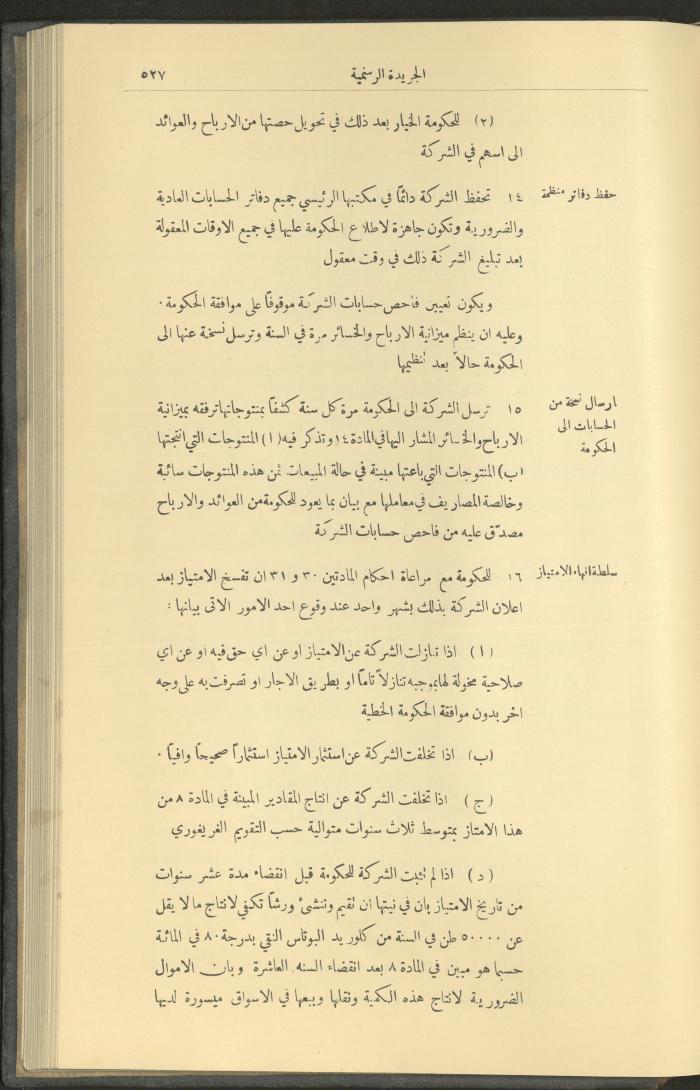 الجريدة الرسمية
٥٢٧
(٢) للحكومة الخيار بعد ذلك في تحويل حصتها من الارباح والعوائد
الى اسهم في الشركة
حفظ دفاتر منظمة
١٤ تحفظ الشركة دائمًا في مكتبها الرئيسي جميع دفاتر الحسابات العادية
والضرورية وتكون جاهزة لاطلاع الحكومة عليها في جميع الاوقات المعقولة
بعد تبليغ الشركة ذلك في وقت معقول
ويكون تعيين فاحص حسابات الشركة موقوفًا على موافقة الحكومة.
وعليه ان ينظم ميزانية الارباح والخسائر مرة في السنة وترسل نسخة عنها الى
الحكومة حالاً بعد تنظيمها
ارسال نسخة من
الحسابات الى
الحكومة
١٥ ترسل الشركة الى الحكومة مرة كل سنة كشفًا بمنتوجاتها ترفقه بميزانية
الارباح والخسائر المشار اليها في المادة ١٤ وتذكر فيه (ا) المنتوجات التي انتجتها
(ب) المنتوجات التي باعتها مبينة في حالة المبيعات ثمن هذه المنتوجات سائبة
وخالصة المصاريف في معاملها مع بيان بما يعود للحكومة من العوائد والارباح
مصدّق عليه من فاحص حسابات الشركة
سلطة انهاء الامتياز
١٦ للحكومة مع مراعاة احكام المادتين ٣٠ و ٣١ ان تفسخ الامتياز بعد
اعلان الشركة بذلك بشهر واحد عند وقوع احد الامور الاتي بيانها :
(ا) اذا تنازلت الشركة عن الامتياز او عن اي حق فيه او عن اي
صلاحية مخولة لها بموجبه تنازلاً تامًا او بطريق الاجار او تصرفت به على وجه
اخر بدون موافقة الحكومة الخطية
(ب) اذا تخلفت الشركة عن استثمار الامتياز استثمارًا صحيحًا وافيًا.
(ج) اذا تخلفت الشركة عن انتاج المقادير المبينة في المادة ٨ من
هذا الامتاز بمتوسط ثلاث سنوات متوالية حسب التقويم الغريغوري
(د) اذا لم تثبت الشركة للحكومة قبل انقضاء مدة عشر سنوات
من تاريخ الامتياز بان في نيتها ان تقيم وتنشئ ورشًا تكفي لانتاج ما لا يقل
عن ٥٠٠٠٠ طن في السنة من كلوريد البوتاس النقي بدرجة ٨٠ في المائة
حسبما هو مبين في المادة ٨ بعد انقضاء السنه العاشرة وبان الاموال
الضرورية لانتاج هذه الكمية ونقلها وبيعها في الاسواق ميسورة لديها